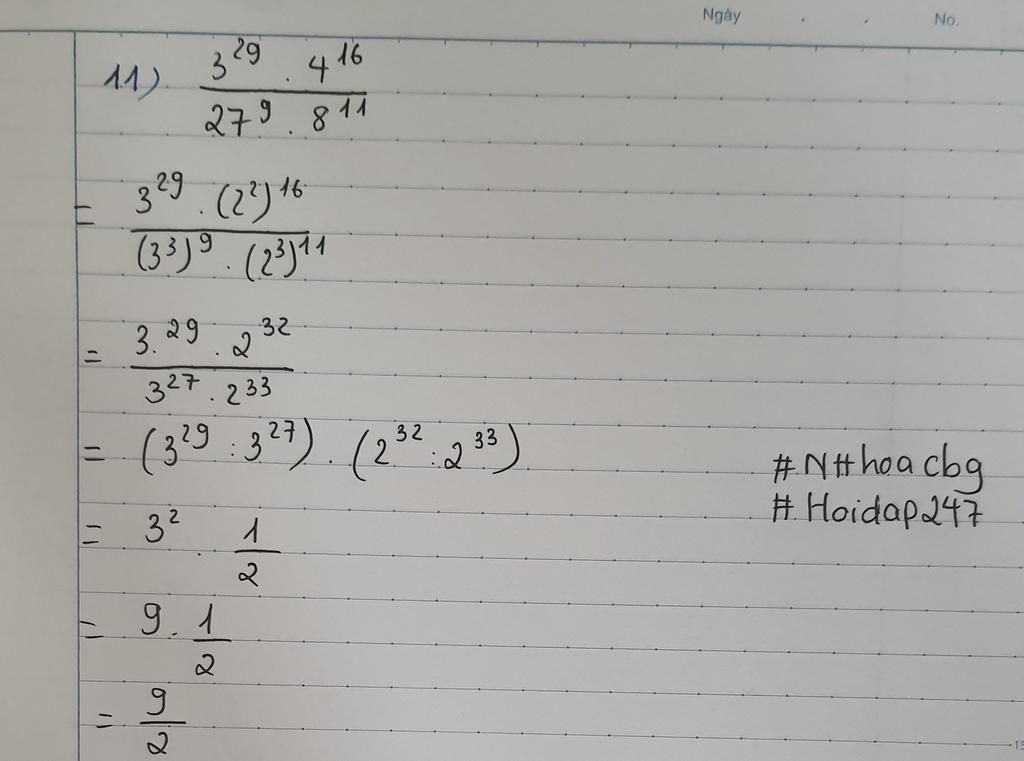 Ngày . . No.
11) \frac{3^{29} . 4^{16}}{27^{9} . 8^{11}}
= \frac{3^{29} . (2^{2})^{16}}{(3^{3})^{9} . (2^{3})^{11}}
= \frac{3.^{29} . 2^{32}}{3^{27} . 2^{33}}
= (3^{29} : 3^{27}) . (2^{32} : 2^{33})
#N#hoacbg
#Hoidap247
= 3^{2} . \frac{1}{2}
= 9 . \frac{1}{2}
= \frac{9}{2}